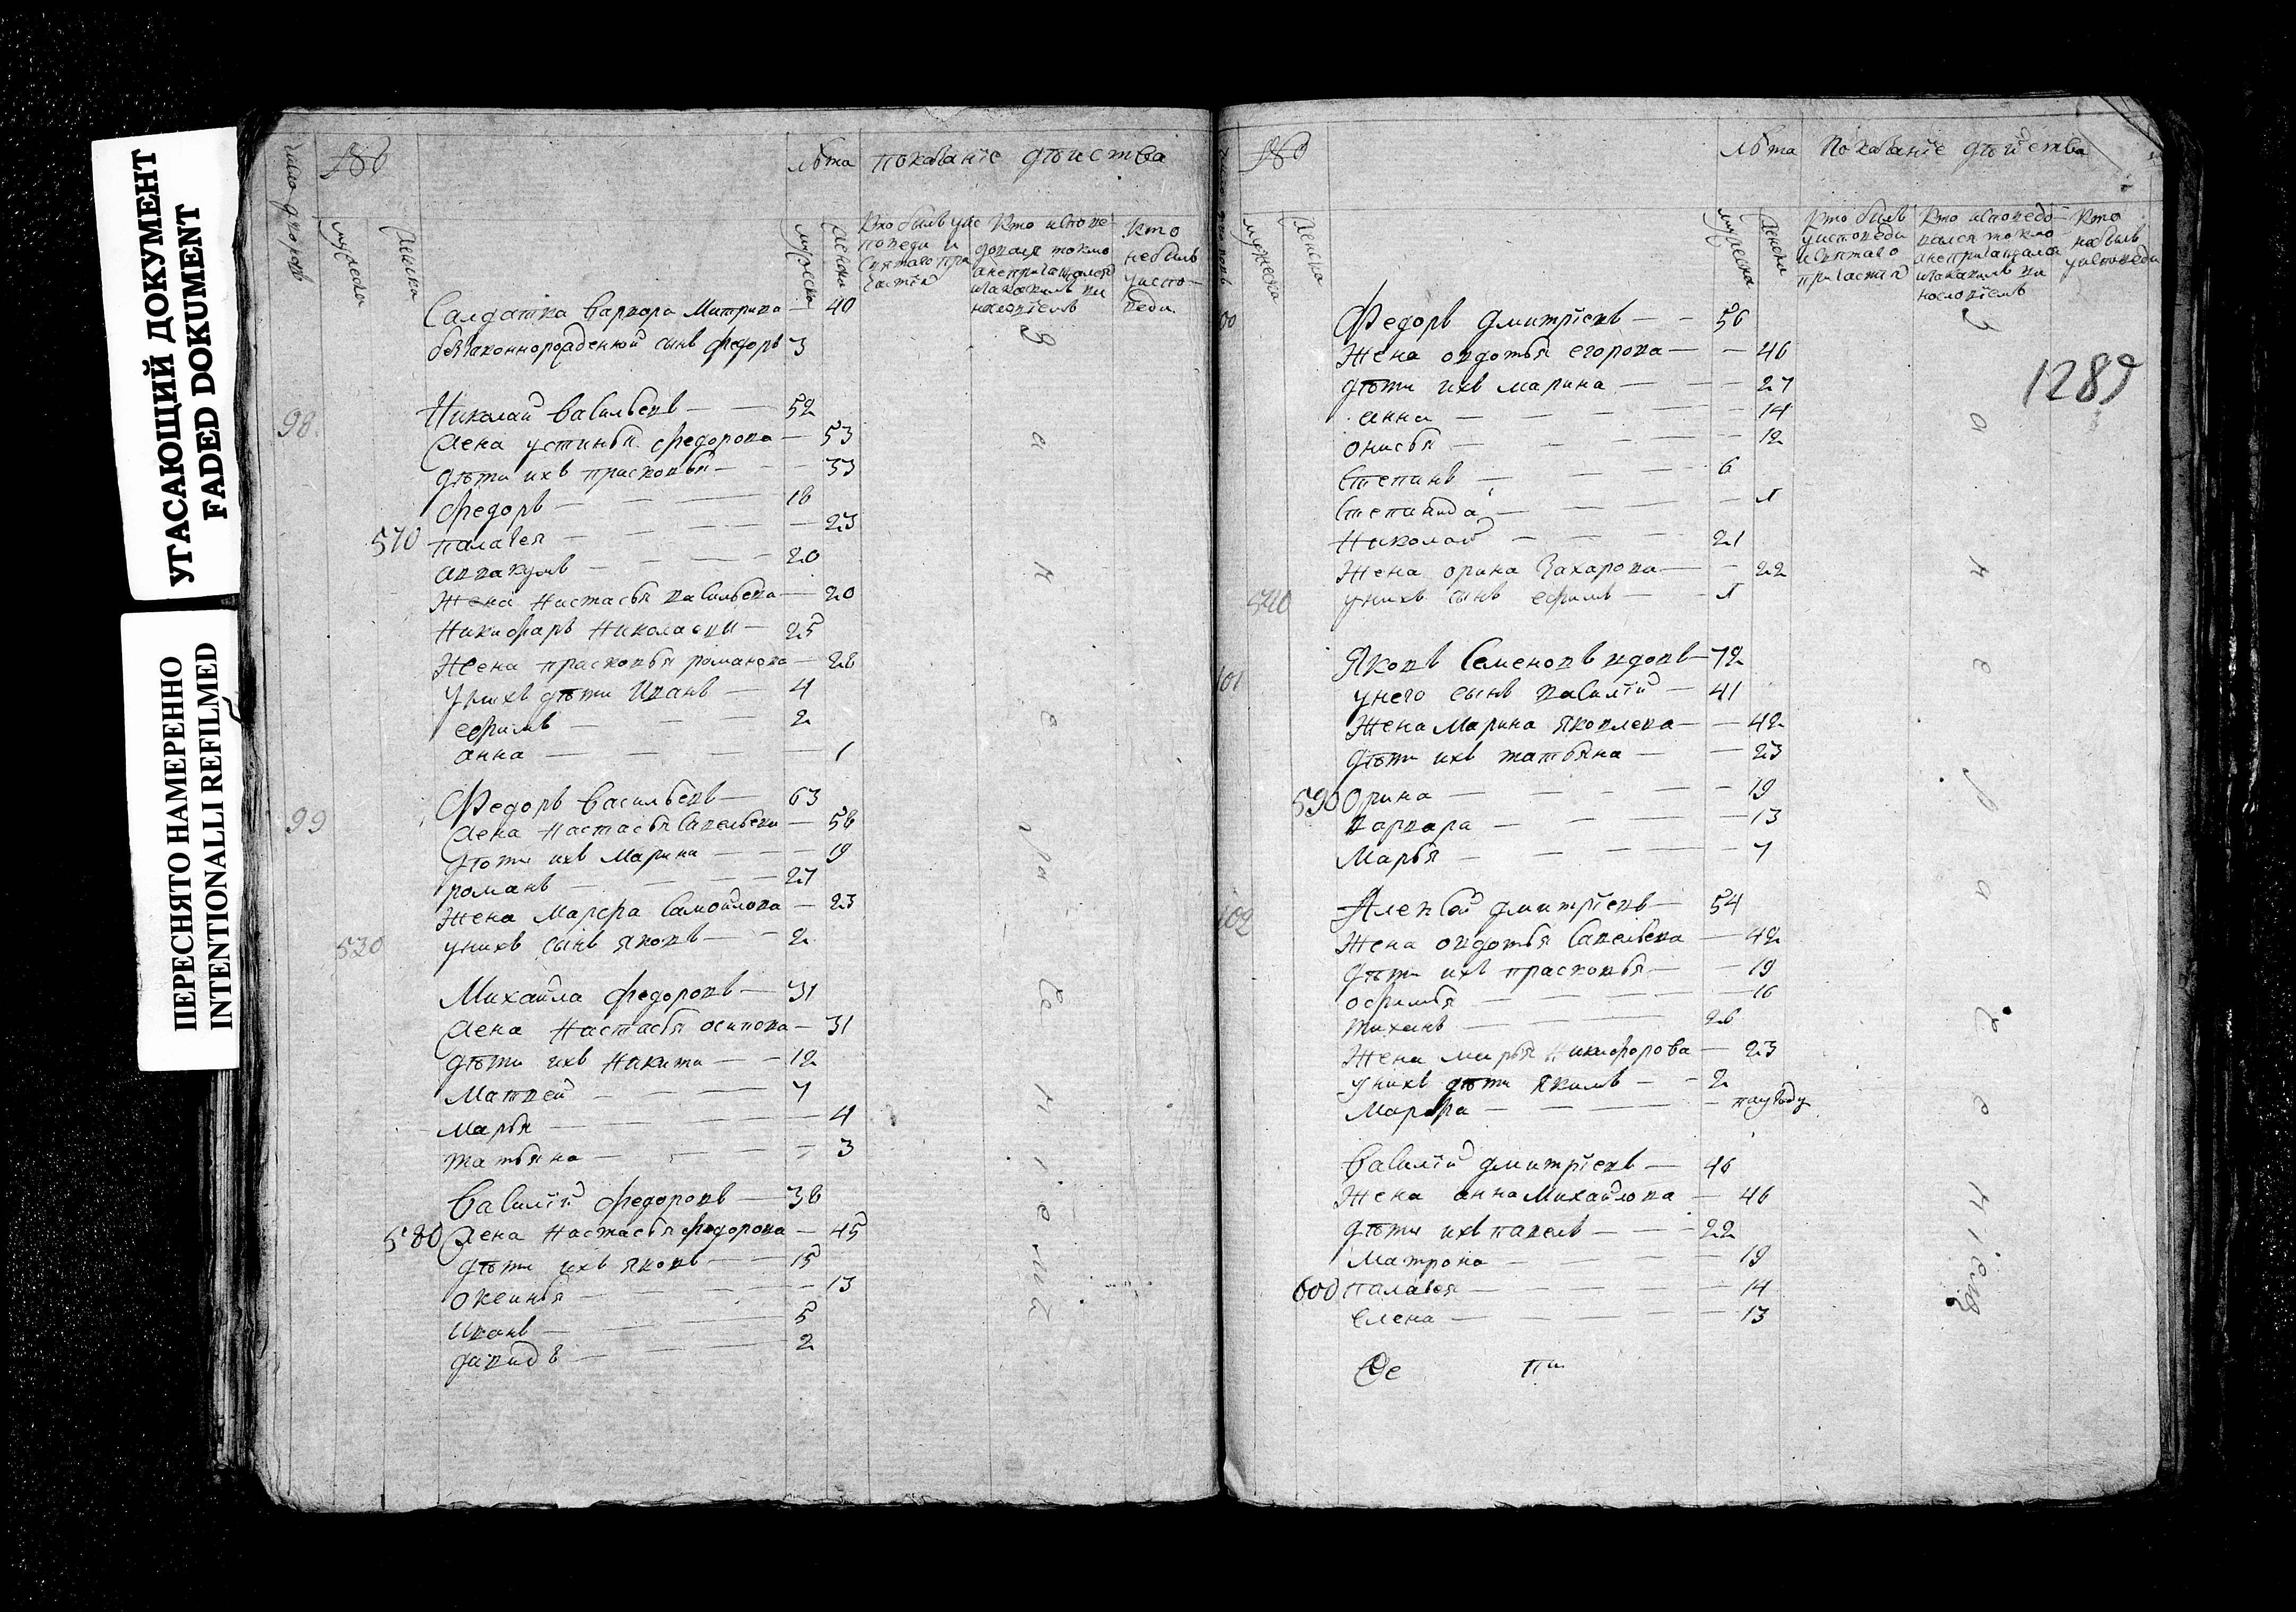 УГАСАЮЩИЙ ДОКУМЕНТ
FADED DOKUMENT
ПЕРЕСНЯТО НАМЕРЕННО
INTENTIONALLI REFILMED
лѣта показанїе дѣйства
число дворовъ мужеска женска
мужеска женска
Кто былъ у испо
веди и
святаго при
частїя
Кто испове
довался токмо
а не причащался
и за какимъ ви
нословїемъ
Кто
небылъ
у испо-
веди
Салдатка варвара Митрива — 40
беззаконнорожденной сынъ федоръ 3
98. Николай васильевъ — — 52
жена устинья федорова — 53
дѣти ихъ прасковья — — 33
федоръ — — 18
510 палагея — — 23
аввакумъ — — 20
Жена Настасья васильева — 20
Никифаръ Николаевъ — 25
Жена прасковья романова — 28
у нихъ дѣти Иванъ — 4
ефимъ — — 2
анна — — 1
99 Федоръ васильевъ — 63
жена Настасья савельева — 58
дѣти ихъ Марина — — 19
романъ — — 27
Жена Марфа Самойлова — 23
530 у нихъ сынъ яковъ — 2
Михайла федоровъ — 31
жена Настасья осипова — 31
дѣти ихъ Никита — — 12
Матвей — — 7
марья — — 4
татьяна — — 3
василїй федоровъ — 38
580 жена Настасья федорова — 45
дѣти ихъ яковъ — 15
оксинья — — 13
иванъ — — 5
давидъ — — 2
за
малора
сенїемъ
лѣта Показанїе дѣйства
мужеска женска
мужеска женска
Кто былъ
у исповеди
и святаго
причастїя
Кто исповедо-
вался токмо
а не причащался
и за какимъ ви
нословїемъ
Кто
небылъ
у исповеди
1289
Федоръ дмитрїевъ — — 56
Жена овдотья егорова — — 46
дѣти ихъ марина — — 27
анна — — 14
онисья — — 12
Степанъ — — 6
Степанида — — 1
Николай — — 21
Жена орина Захарова — — 22
540 у нихъ сынъ ефимъ — — 1
101 Яковъ Семеновъ вдовъ — 72
у него сынъ василїй — 41
Жена Марина Яковлева — — 42
дѣти ихъ татьяна — — 23
590 Орина — — 19
варвара — — 13
Марья — — 7
102 Алексѣй дмитрїевъ — 54
Жена овдотья Савельева — 42
дѣти ихъ прасковья — — 19
офимья — — 16
тиханъ — — 26
Жена марья Никифорова — 23
у нихъ дѣти Якимъ — — 2
Марфа — — полугоду
василїй дмитрїевъ — 46
Жена анна Михайлова — 46
дѣти ихъ павелъ — — 22
матрона — — 19
600 палагея — — 14
елена — — 13